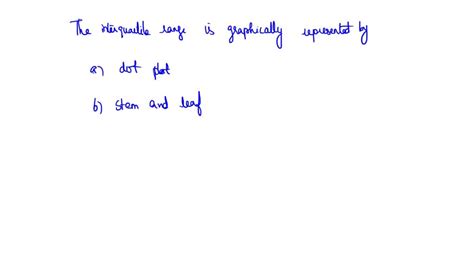 The interquartile range is graphically represented by
a) dot plot
b) stem and leaf